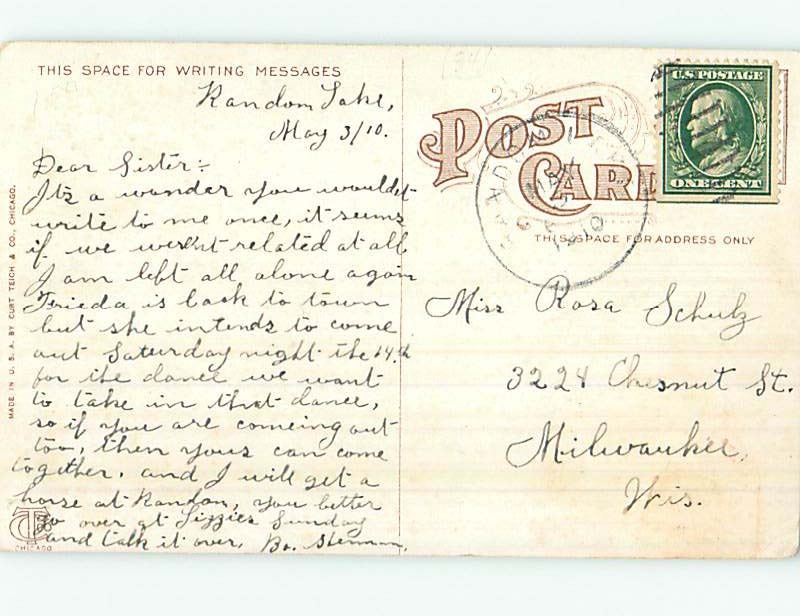 THIS SPACE FOR WRITING MESSAGES
Random Lake,
May 3/10.
Dear Sister:
Its a wonder you wouldn't
write to me once, it seems
if we wesn't related at all
I am left all alone again
Frieda is back to town
but she intends to come
out Saturday night the 14th
for the dance we want
to take in that dance,
so if you are comeing out
too, then yous can come
together, and I will get a
horse at Randon, you better
go over at Lizzies Sunday
and talk it over, Bo.
MADE IN U. S. A. BY CURT TEICH & CO., CHICAGO.
CT
CHICAGO
POST
CARD
U.S. POSTAGE
ONE CENT
1910
THIS SPACE FOR ADDRESS ONLY
Miss Rosa Schulz
3224 Chesnut St.
Milwaukee,
Wis.